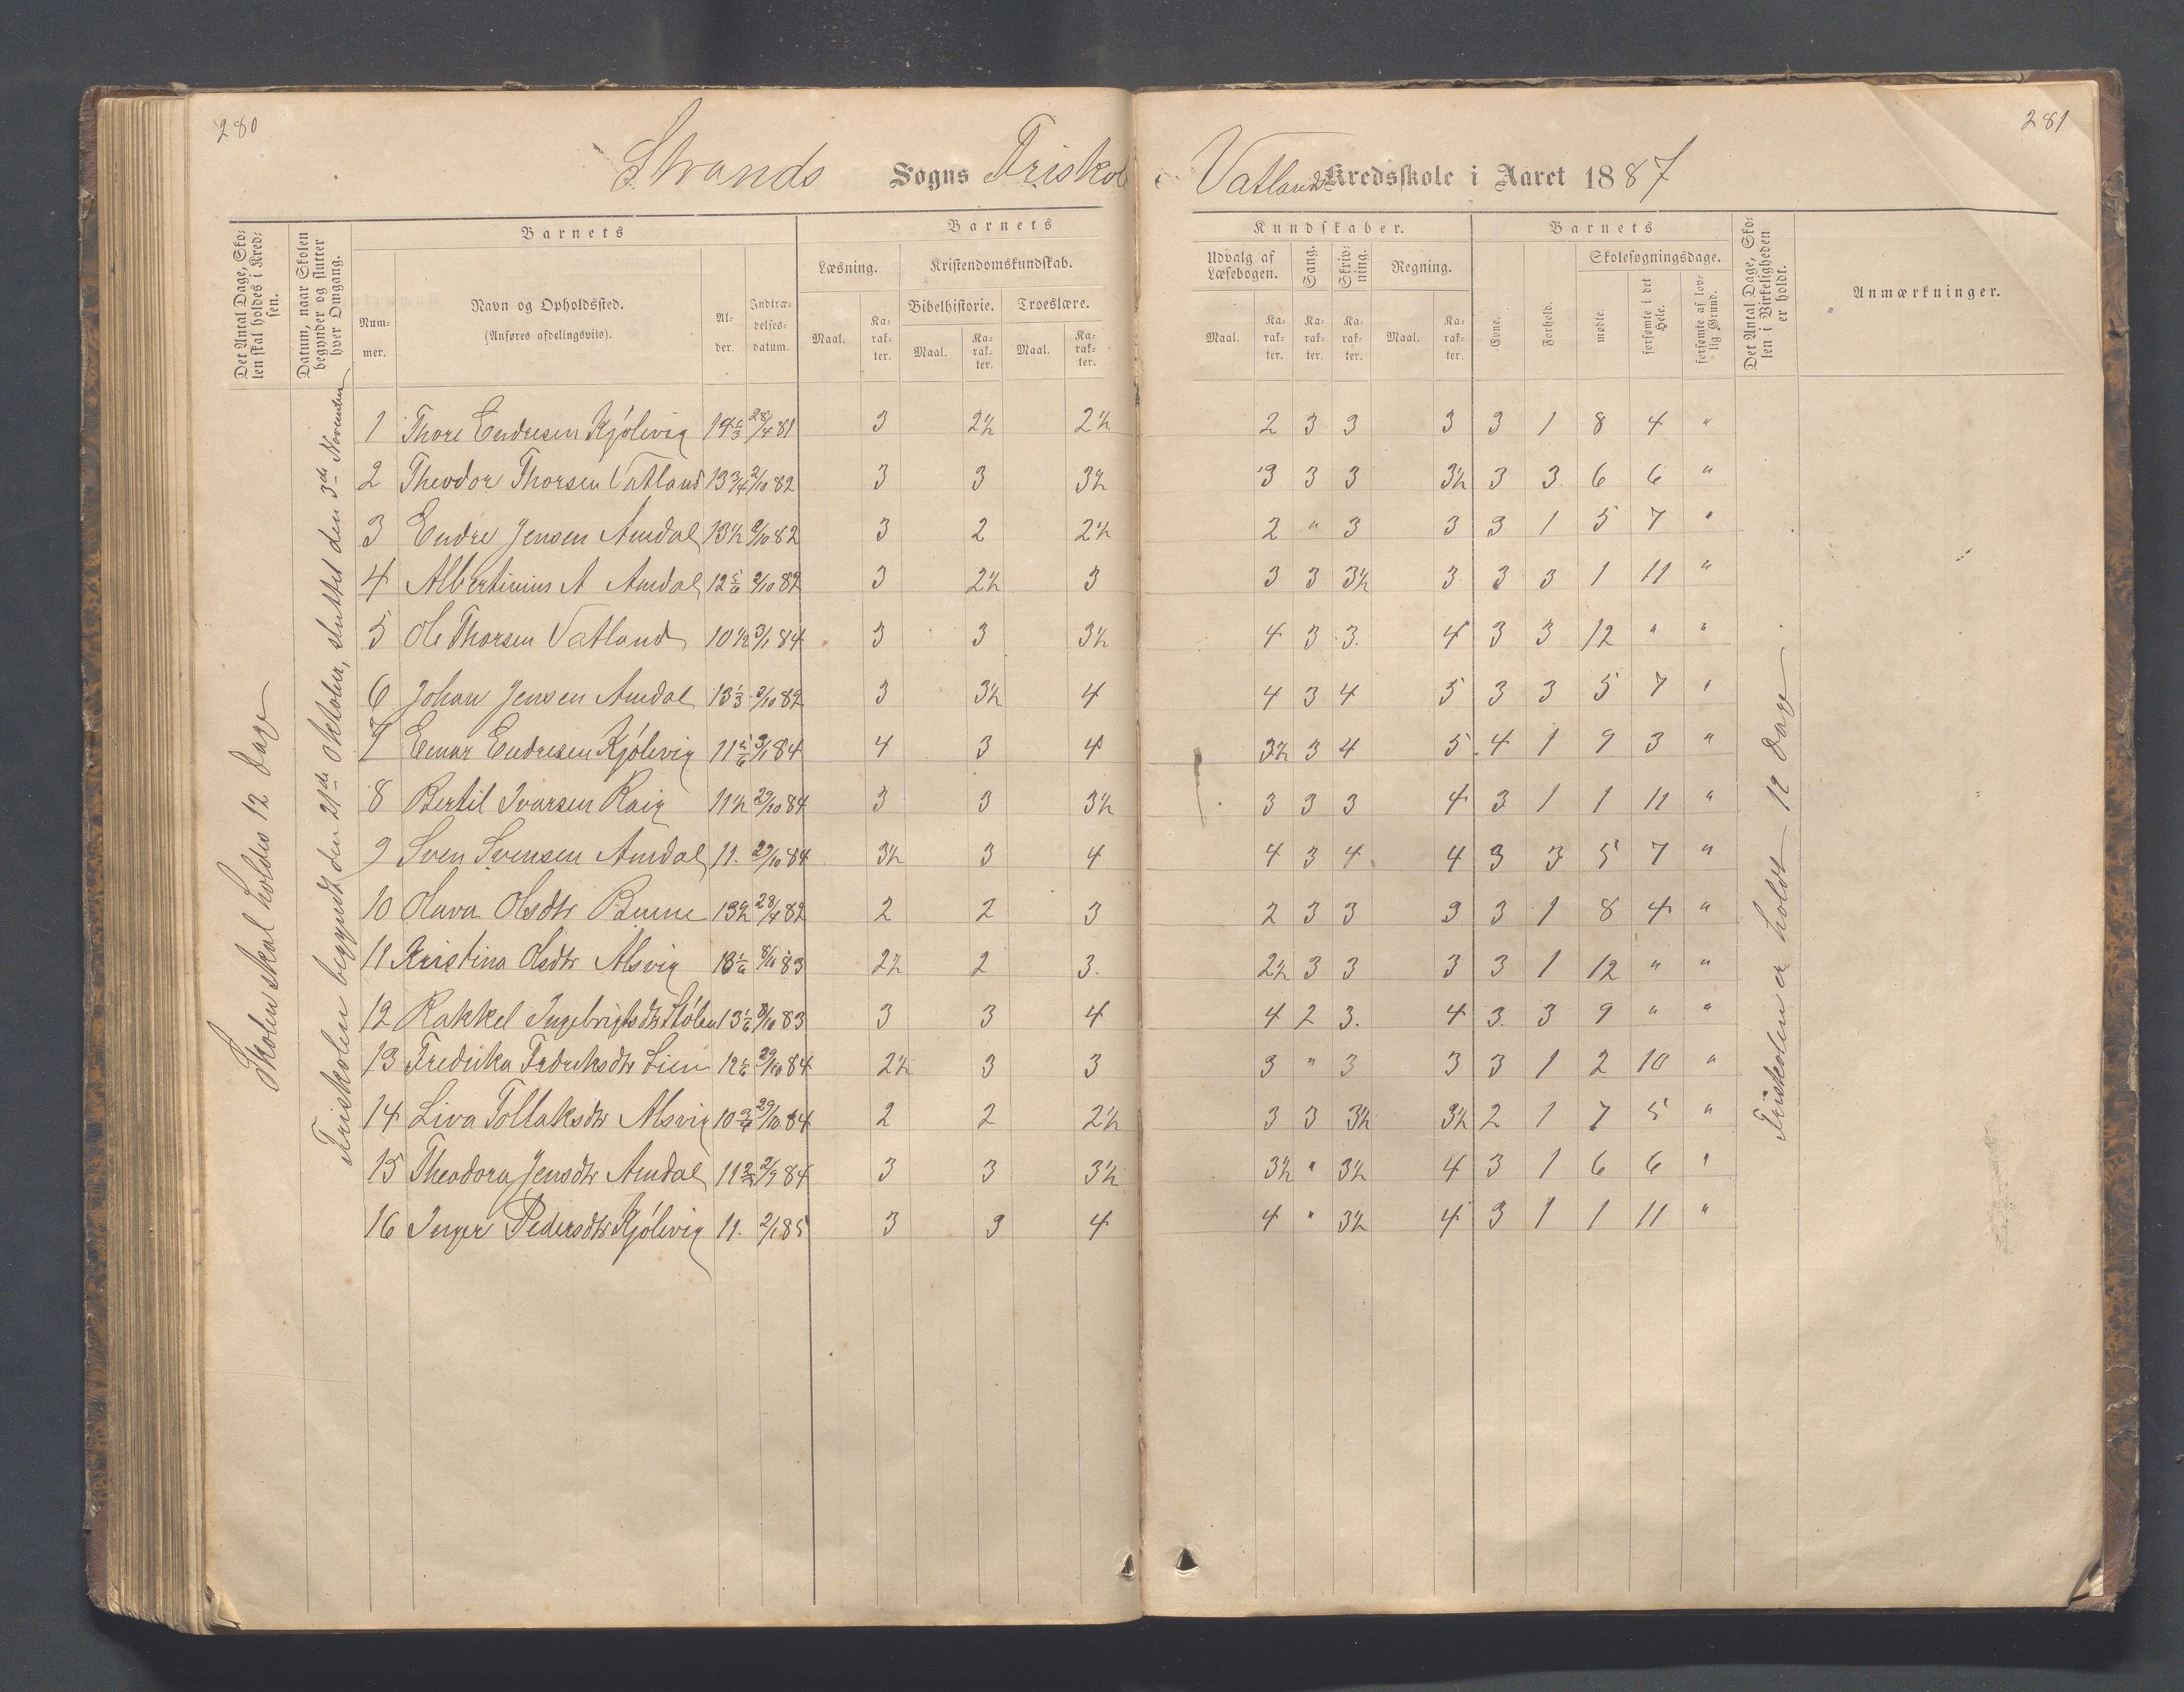 280
281
Strands Sogns Friskole Vatlands Kredsskole i Aaret 1887
Det Antal Dage, Skolen skal holdes i Kredsen.
Datum, naar Skolen begynder og slutter hver Omgang.
Barnets
Nummer.
Navn og Opholdssted.
(Anføres afdelingsviis).
Alder.
Indtrædelsesdatum.
Barnets
Læsning.
Kristendomskundskab.
Bibelhistorie.
Troeslære.
Maal.
Karakter.
Maal.
Karakter.
Maal.
Karakter.
Kundskaber.
Udvalg af Læsebogen.
Sang.
Skrivning.
Regning.
Maal.
Karakter.
Karakter.
Karakter.
Maal.
Karakter.
Barnets
Evne.
Forhold.
Skolesøgningsdage.
mødte.
forsømte i det Hele.
forsømte af lovlig Grund.
Det Antal Dage, Skolen i Virkeligheden er holdt.
Anmærkninger.
Skolen skal holdes 12 Dage
Friskolen begyndt den 21de Oktober, sluttet den 3de November
1 Thore Endresen Kjölevig 14 1/3 28/4 81 3 2½ 2½ 2 3 3 3 3 1 8 4 "
2 Theodor Thorsen Vatland 13 3/4 2/10 82 3 3 3½ 3 3 3 3½ 3 3 6 6 "
3 Endre Jensen Amdal 13½ 2/10 82 3 2 2½ 2 " 3 3 3 1 5 7 "
4 Albertinius A Amdal 12 5/6 2/10 82 3 2½ 3 3 3 3½ 3 3 3 1 11 "
5 Ole Thorsen Vatland 10½ 3/1 84 3 3 3½ 4 3 3. 4 3 3 12 " "
6 Johan Jensen Amdal 13 1/3 2/10 82 3 3½ 4 4 3 4 5 3 3 5 7 "
7 Einar Endresen Kjölevig 11 5/6 3/1 84 4 3 4 3½ 3 4 5 4 1 9 3 "
8 Bertil Ivarsen Kaig 11½ 29/10 84 3 3 3½ 3 3 3 4 3 1 1 11 "
9 Sven Svensen Amdal 11. 29/10 84 3½ 3 4 4 3 4 4 3 3 5 7 "
10 Olava Olsdtr 13½ 28/4 82 2 2 3 2 3 3 3 3 1 8 4 "
11 Kristina Olsdtr Alsvig 13 1/6 8/10 83 2½ 2 3. 2½ 3 3 3 3 1 12 " "
12 Rakkel Ingebrigtsdtr Stölen 13 1/6 8/10 83 3 3 4 4 2 3. 4 3. 3 9 " "
13 Fredrika Fredriksdtr Lien 12 1/6 29/10 84 2½ 3 3 3 " 3 3 3 1 2 10 "
14 Liva Tollaksdtr Alsvig 10 3/4 29/10 84 2 2 2½ 3 3 3½ 3½ 2 1 7 5 "
15 Theodora Jensdtr Amdal 11 2/3 2/7 84 3 3 3½ 3½ " 3½ 4 3 1 6 6 "
16 Inger Pedersdtr Kjölevig 11. 2/1 85 3 3 4 4 " 3½ 4 3 1 1 11 "
Friskolen er holdt 12 Dage